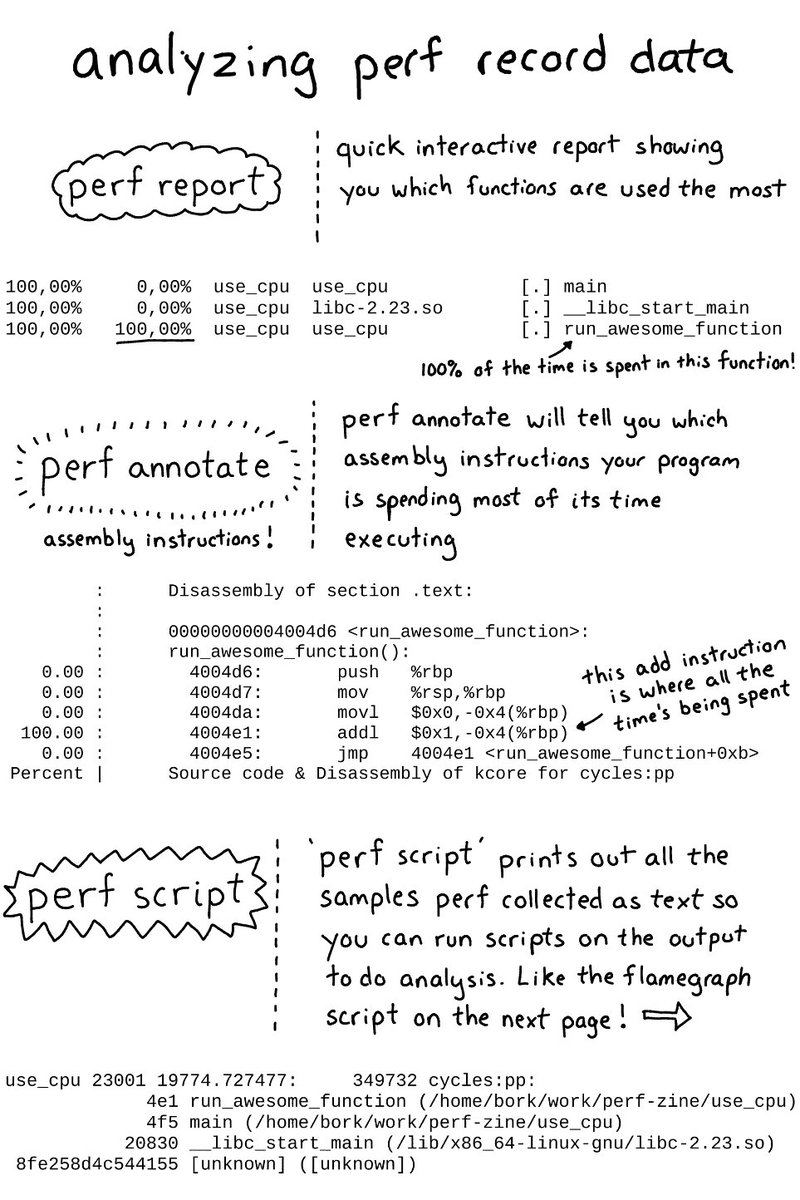 analyzing perf record data
perf report
quick interactive report showing
you which functions are used the most
100,00%     0,00%  use_cpu  use_cpu            [.] main
100,00%     0,00%  use_cpu  libc-2.23.so       [.] __libc_start_main
100,00%   100,00%  use_cpu  use_cpu            [.] run_awesome_function
100% of the time is spent in this function!
perf annotate
assembly instructions!
perf annotate will tell you which
assembly instructions your program
is spending most of its time
executing
:      Disassembly of section .text:
:
:      00000000004004d6 <run_awesome_function>:
:      run_awesome_function():
0.00 :        4004d6:       push   %rbp
0.00 :        4004d7:       mov    %rsp,%rbp
0.00 :        4004da:       movl   $0x0,-0x4(%rbp)
100.00 :        4004e1:       addl   $0x1,-0x4(%rbp)
0.00 :        4004e5:       jmp    4004e1 <run_awesome_function+0xb>
Percent |      Source code & Disassembly of kcore for cycles:pp
this add instruction
is where all the
time's being spent
perf script
'perf script' prints out all the
samples perf collected as text so
you can run scripts on the output
to do analysis. Like the flamegraph
script on the next page!
use_cpu 23001 19774.727477:     349732 cycles:pp:
4e1 run_awesome_function (/home/bork/work/perf-zine/use_cpu)
4f5 main (/home/bork/work/perf-zine/use_cpu)
20830 __libc_start_main (/lib/x86_64-linux-gnu/libc-2.23.so)
8fe258d4c544155 [unknown] ([unknown])